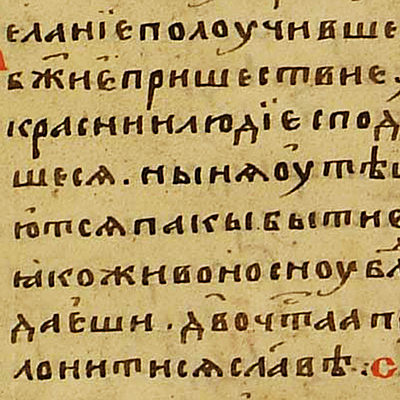 еланїеполоучивше
бжїнепришествие.
красниилюдїеспод
шеся.нынѧоутѣ
ютсѧпакы.бытие
ꙗкоживоносноубл
даеши.двочⷭ҇таап
лонитисѧславѣ.:с